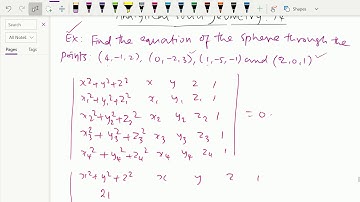 Shapes
Pages
All Notes
Search
Analytical solid geometry
Ex: Find the equation of the Sphere through the
points (4,-1,2), (0,-2,3), (1,-5,-1) and (2,0,1)
x²+y²+z² x y z 1
x₁²+y₁²+z₁² x₁ y₁ z₁ 1
x₂²+y₂²+z₂² x₂ y₂ z₂ 1 = 0.
x₃²+y₃²+z₃² x₃ y₃ z₃ 1
x₄²+y₄²+z₄² x₄ y₄ z₄ 1
x²+y²+z² x y z 1
21